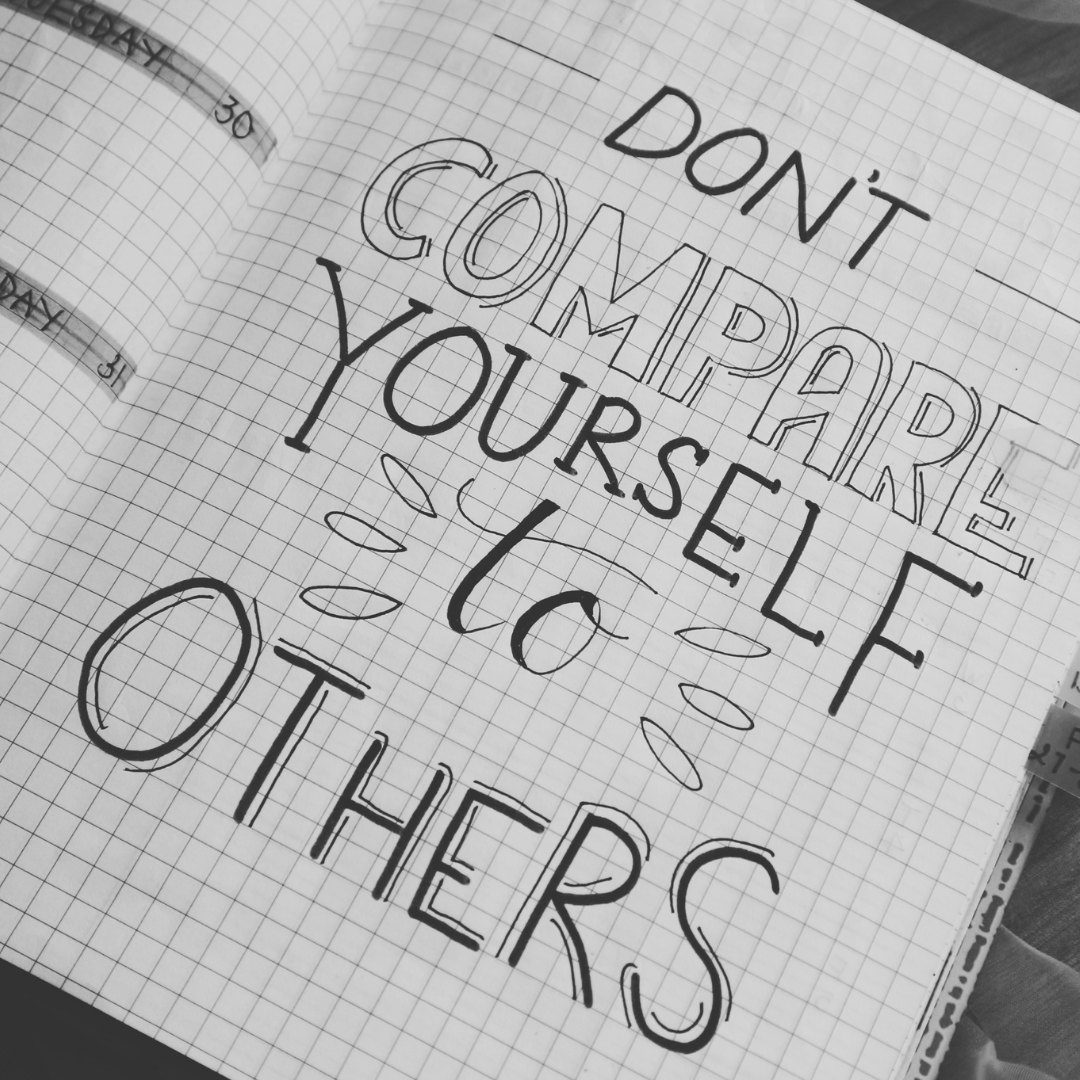 TUESDAY 30
DAY 31
DON'T
COMPARE
YOURSELF
to
OTHERS